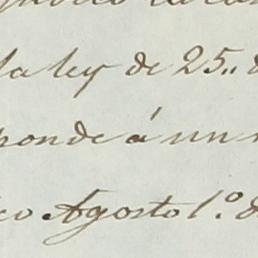 la ley de 25"
ponde á un
co Agosto 1.º de